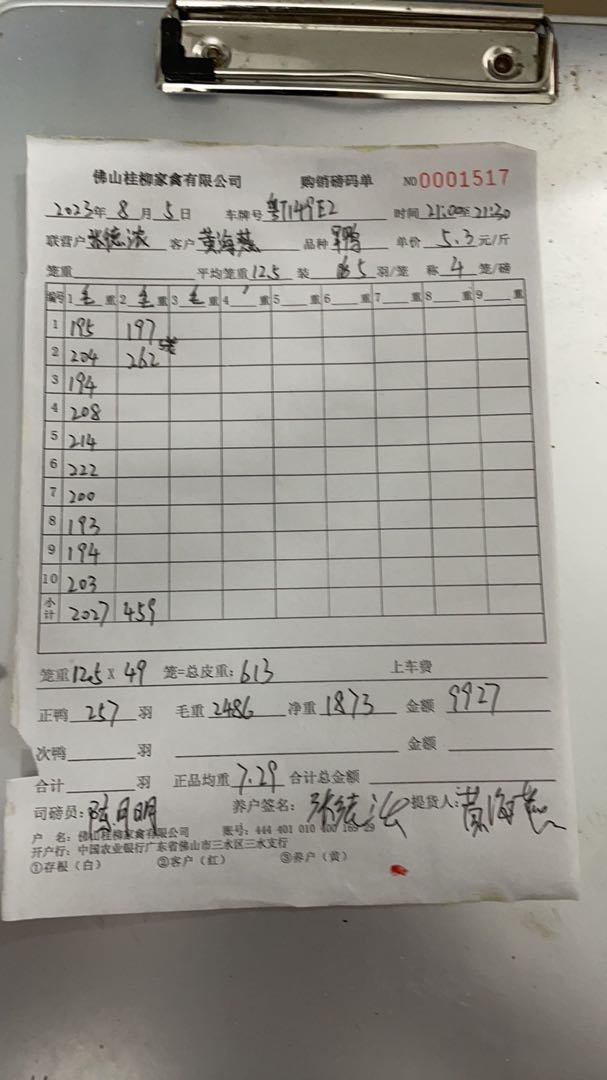 佛山桂柳家禽有限公司 购销磅码单 NO 0001517
2023年 8 月 5 日 车牌号 粤T149E2 时间 21:00至21:30
联营户 张德浓 客户 黄海燕 品种 鸭 单价 5.3 元/斤
笼重 平均笼重 12.5 装 5 羽/笼 称 4 笼/磅
编号 1 毛 重 2 毛 重 3 毛 重 4 重 5 重 6 重 7 重 8 重 9 重
1 195 197
2 204 262
3 194
4 208
5 214
6 222
7 200
8 193
9 194
10 203
小计 2027 459
笼重 12.5 X 49 笼=总皮重: 613 上车费
正鸭 257 羽 毛重 2486 净重 1873 金额 9927
次鸭 羽 金额
合计 羽 正品均重 7.29 合计总金额
司磅员: 陆明 养户签名: 张德浓 提货人: 黄海燕
户 名: 佛山桂柳家禽有限公司 账号: 444 401 010 400 169 29
开户行: 中国农业银行广东省佛山市三水区三水支行
①存根（白） ②客户（红） ③养户（黄）